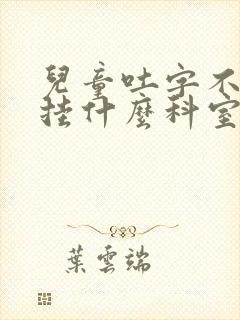 兒童吐字不
挂什麼科室
葉雲端